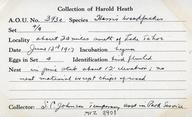 Collection of Harold Heath
A.O.U. No. 393c Species Harris Woodpecker
Set 4/4
Locality about 20 miles south of Lake Tahoe
Date June 13th 1917 Incubation begun
Eggs in Set 4 Identification bird flushed
Nest in pine stub about 12' elevation; no
nest material except chips of wood
Collector: S.C. Johnson Temporary asst in Park Service
MVZ 8901